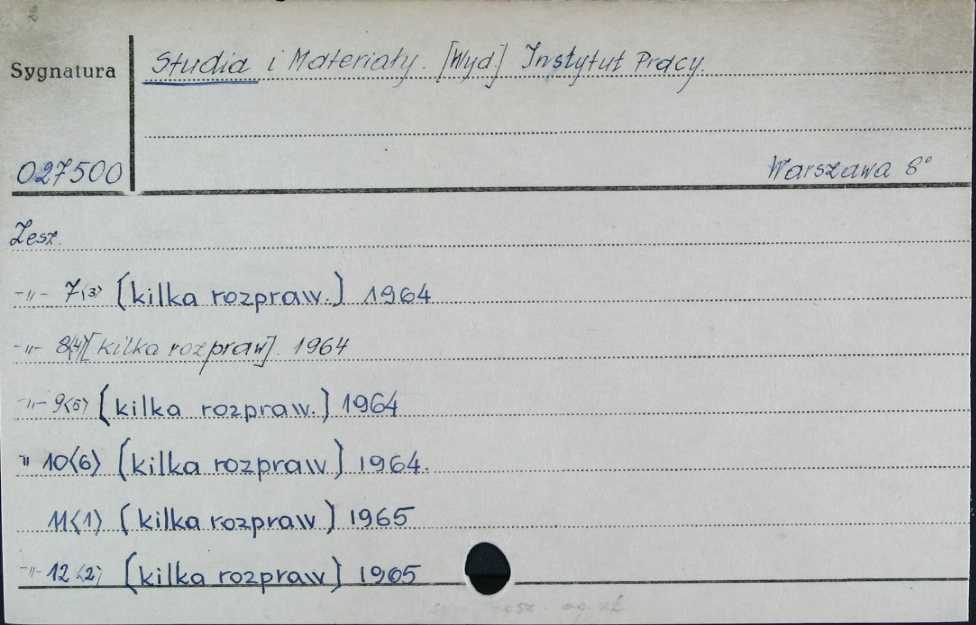 Sygnatura
Studia i Materiały. [Wyd] Instytut Pracy.
027500
Warszawa 8°
Zesz.
-"- 7<3> [kilka rozpraw.] 1964
-"- 8<4> [kilka rozpraw]. 1964
-"- 9<5> [kilka rozpraw.] 1964
" 10<6> [kilka rozpraw] 1964.
11<1> [kilka rozpraw] 1965
-"- 12<2> [kilka rozpraw] 1965